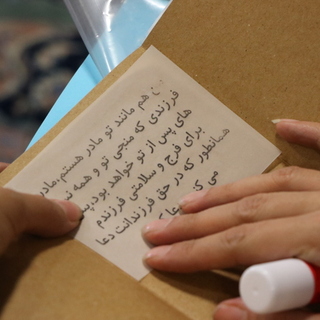 من هم مانند تو مادر هستم.مادر
فرزندی که منجی تو و همه
های پس از تو خواهد بود.پس
برای فرج و سلامتی فرزندم
همانطور که در حق فرزندانت دعا
می کنی